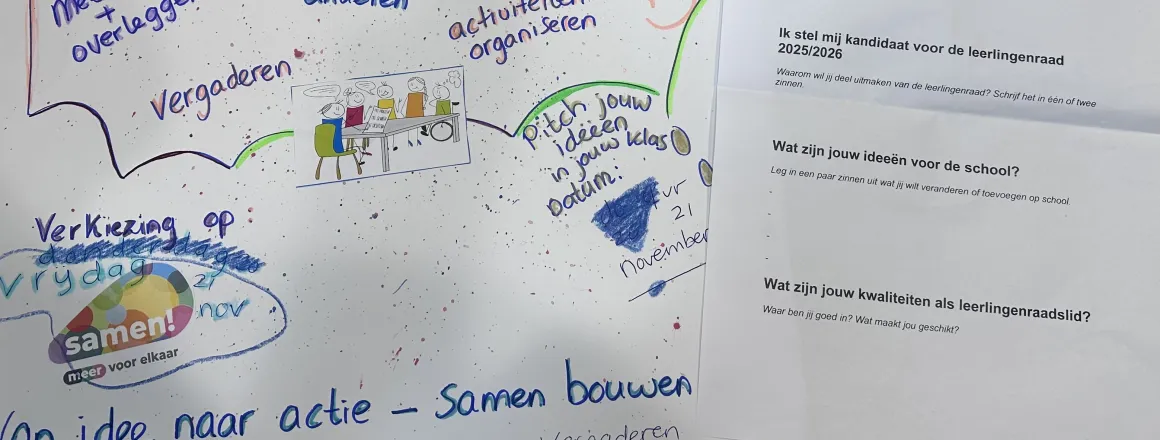 overlegge
anderen
activiteiten
organiseren
Vergaderen
pitch jouw
ideeën
in jouw klas
Datum:
vr
21
november
Verkiezing op:
donderdag
vrydag
21
nov
samen!
meer voor elkaar
Van idee naar actie - Samen bouwen
Vergaderen
Ik stel mij kandidaat voor de leerlingenraad
2025/2026
Waarom wil jij deel uitmaken van de leerlingenraad? Schrijf het in één of twee
zinnen.
Wat zijn jouw ideeën voor de school?
Leg in een paar zinnen uit wat jij wilt veranderen of toevoegen op school.
-
-
-
Wat zijn jouw kwaliteiten als leerlingenraadslid?
Waar ben jij goed in? Wat maakt jou geschikt?